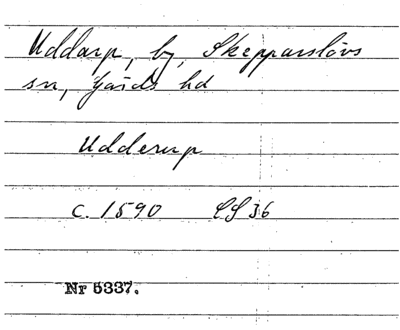 Uddarp, by, Skepparslövs
sn, Gärds hd
Udderup
c. 1590 LS 36
Nr 5337.